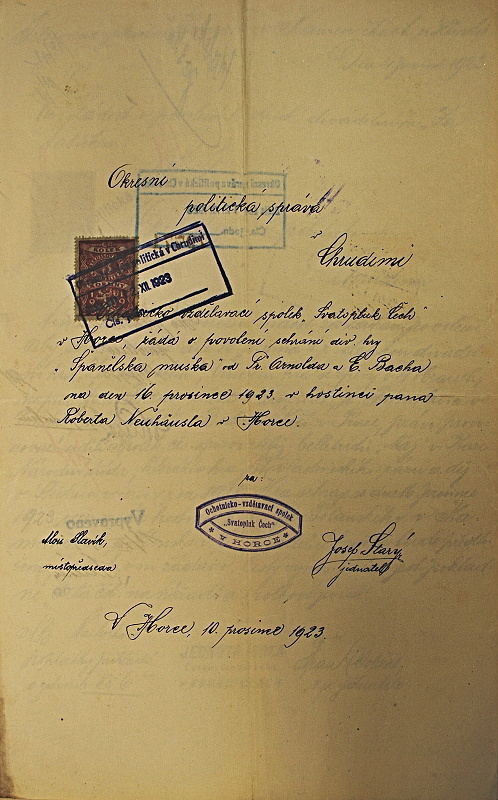 Okresní
politická správa
v
Chrudimi
politická v Chrudimi
XII. 1923
Čís.
vzdělávací spolek „Svatopluk Čech“
v Horce, žádá o povolení sehrání div. hry
„Španělská muška“ od Fr. Arnolda a E. Bacha
na den 16. prosince 1923 v hostinci pana
Roberta Neuhäusla v Horce.
za:
Ochotnicko-vzdělavací spolek
„Svatopluk Čech“
* V HORCE *
Alois Slavík,
místopředseda
Josef Starý,
jednatel
V Horce, 10. prosince 1923.
Vypraveno